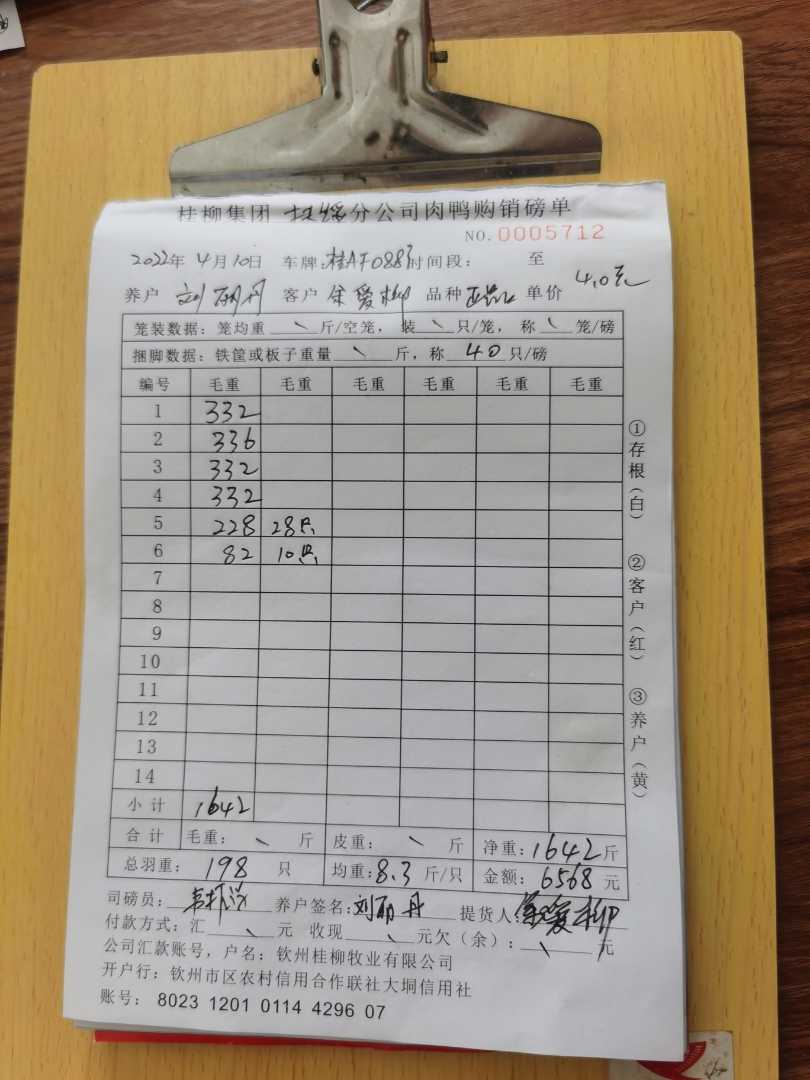 桂柳集团 分公司肉鸭购销磅单
NO. 0005712
2022年 4月10日 车牌:桂AF0883 时间段: 至
养户 刘丽丹 客户 余爱柳 品种 单价 4.0元
笼装数据：笼均重 \ 斤/空笼，装 \ 只/笼，称 \ 笼/磅
捆脚数据：铁筐或板子重量 \ 斤，称 40 只/磅
编号 毛重 毛重 毛重 毛重 毛重 毛重
1 332
2 336
3 332
4 332
5 228 28只
6 82 10只
7
8
9
10
11
12
13
14
小计 1642
合计 毛重： \ 斤 皮重： \ 斤 净重：1642斤
总羽重： 198 只 均重：8.3 斤/只 金额：6568 元
①存根（白） ②客户（红） ③养户（黄）
司磅员： 养户签名：刘丽丹 提货人：余爱柳
付款方式：汇 \ 元 收现 \ 元欠（余）： \ 元
公司汇款账号，户名：钦州桂柳牧业有限公司
开户行：钦州市区农村信用合作联社大垌信用社
账号： 8023 1201 0114 4296 07